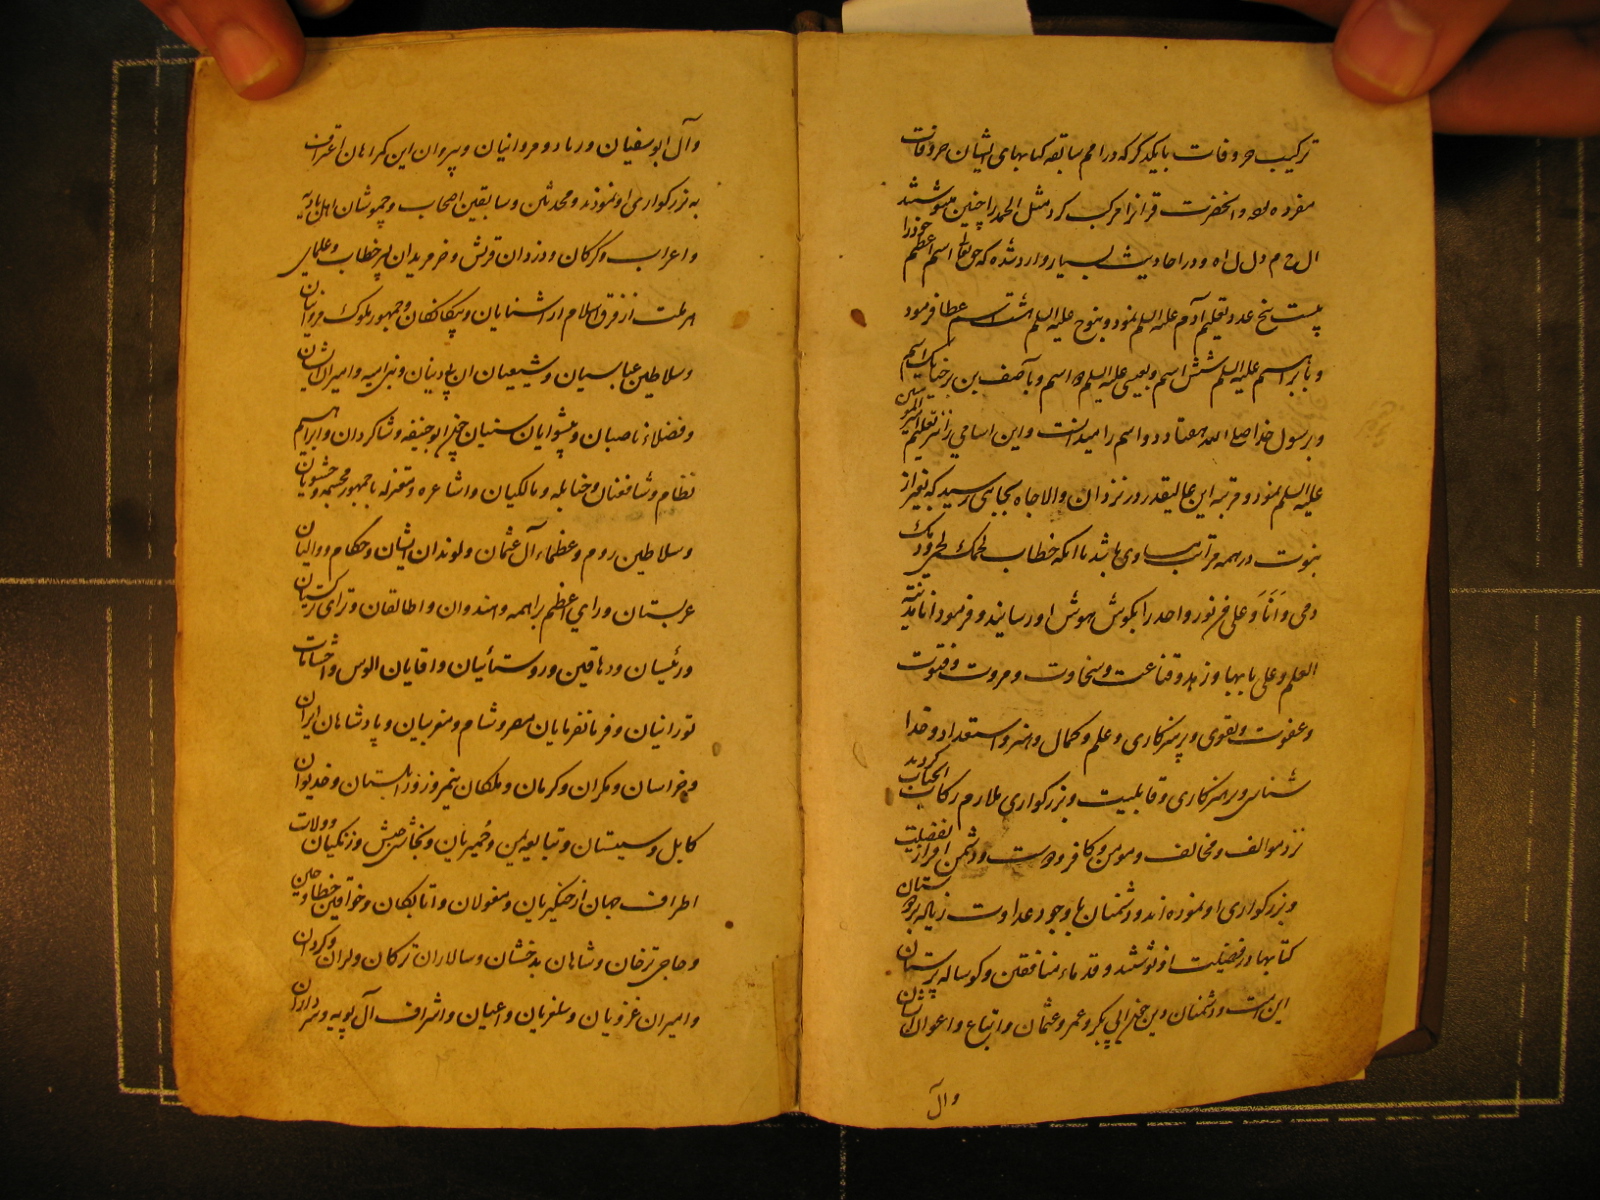 ترکیب حروفات بایکدیکر که در امم سابقه کتابهای ایشان حروفات
مفرده بود و انحضرت قرانرا مرکب کرد مثل الحمد را چنین مینوشتند
ال ح م د ل ل ا ه و در احادیث بسیار وارد شده که حق تعا اسم اعظم خود را
بیست پنج عدد تعلیم آدم علیه السلم نمود و بنوح علیه السلم هشت اسم عطا فرمود
و بابراهیم علیه السلم شش اسم و بعیسی علیه السلم دو اسم و بآصف بن برخیا یک اسم
و برسول خدا صلی الله هفتاد دو اسم را میدانست و این اسامی را تعلیم امیر المومنین
علیه السلم نمود و مرتبه این عالیقدر در نزد ان والاجاه بجایی رسید که بغیر از
نبوت در همه مراتب مساوی باشد با انکه خطاب لحمک لحمی و دمک
دمی و انا و علی من نور واحد را بکوش هوش او رسانید و فرمود انا مدینة
العلم و علی بابها و زهد و قناعت و سخاوت و مروت و فتوت
و عفوت و تقوی و پرهیزکاری و علم و کمال و هنر و استعداد و خدا
شناسی و پرهیزکاری و قابلیت و بزرکواری ملازم رکاب انجناب کردید
نزد موالف و مخالف و مومن و کافر و دوست و دشمن اقرار بفضلیت
و بزرکواری او نموده اند و دشمنان با وجود عداوت
کتابها در فضیلت او نوشتند و قدماء منافقین و کوساله پرستان
این امت و دشمنان دین چون ابی بکر و عمر و عثمان و اتباع و اعوان ایشان
و آل
و آل ابو سفیان و زیاد و مروانیان و پیروان این کمراهان اعتراف
به بزرکواری او نمودند و محدثین و سابقین اصحاب و اهل بادیه
و اعراب و کرکان و دزدان قرش و خر مریدان پسر خطاب و علمای
هر ملت از فرق اسلام از اشنایان و بیکانکان و جمهور ملوک مروانیان
و سلاطین عباسیان و شیعیان ان بیدینان و بنی امیه و امیران ایشان
و فضلاء ناصبان و پیشوایان سنیان چون ابو حنیفه و شاکردان و ابراهیم
نظام و شافعیان و حنابله و مالکیان و اشاعره و معتزله با جمهور مجسمه و حشویان
و سلاطین روم و عظماء آل عثمان و لوندان ایشان و حکام و والیان
عربستان و رای اعظم براهمه و هندوان و اطالقان و ترای
و رئیسان و دهاقین و روستائیان و اقایان الوس و احشامات
تورانیان و فرمانفرمایان مصر و شام و مغربیان و پادشاهان ایران
و خراسان و مکران و کرمان و ملکان نیمروز زابلستان و خدیوان
کابل و سیستان و تبابعه یمن و حمیریان و نجاشی حبش و زنکیان و ولات
اطراف جهان از چنکیزیان و مغولان و اتابکان و خواقین خطا و چین
و حاجی ترخان و شاهان بدخشان و سالاران ترکان و لران و کردان
و امیران غزویان و سلغریان و اعیان و اشراف آل بویه و سرداران